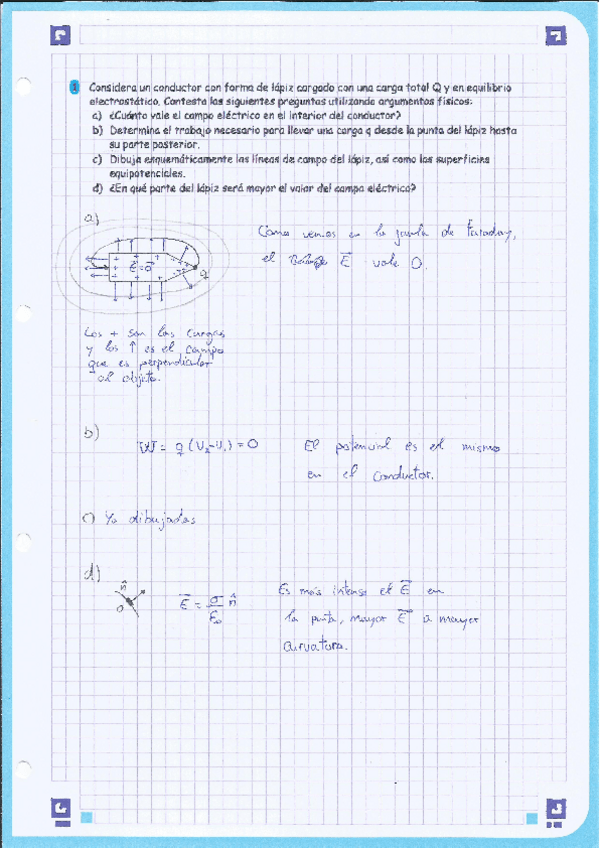 1 Considera un conductor con forma de lápiz cargado con una carga total Q y en equilibrio
electrostático. Contesta las siguientes preguntas utilizando argumentos físicos:
a) ¿Cuánto vale el campo eléctrico en el interior del conductor?
b) Determina el trabajo necesario para llevar una carga q desde la punta del lápiz hasta
su parte posterior.
c) Dibuja esquemáticamente las líneas de campo del lápiz, así como las superficies
equipotenciales.
d) ¿En qué parte del lápiz será mayor el valor del campo eléctrico?
a)
Como vemos en la jaula de Faraday,
el E⃗ vale 0.
E⃗=0⃗
q
Los + son las cargas
y los ↑ es el campo
que es perpendicular
al objeto.
b)
W = q (V₂-V₁) = 0
El potencial es el mismo
en el conductor.
c) Ya dibujadas
d)
n̂
σ
E⃗ = σ/ε₀ n̂
Es más intenso el E⃗ en
la punta, mayor E⃗ a mayor
curvatura.